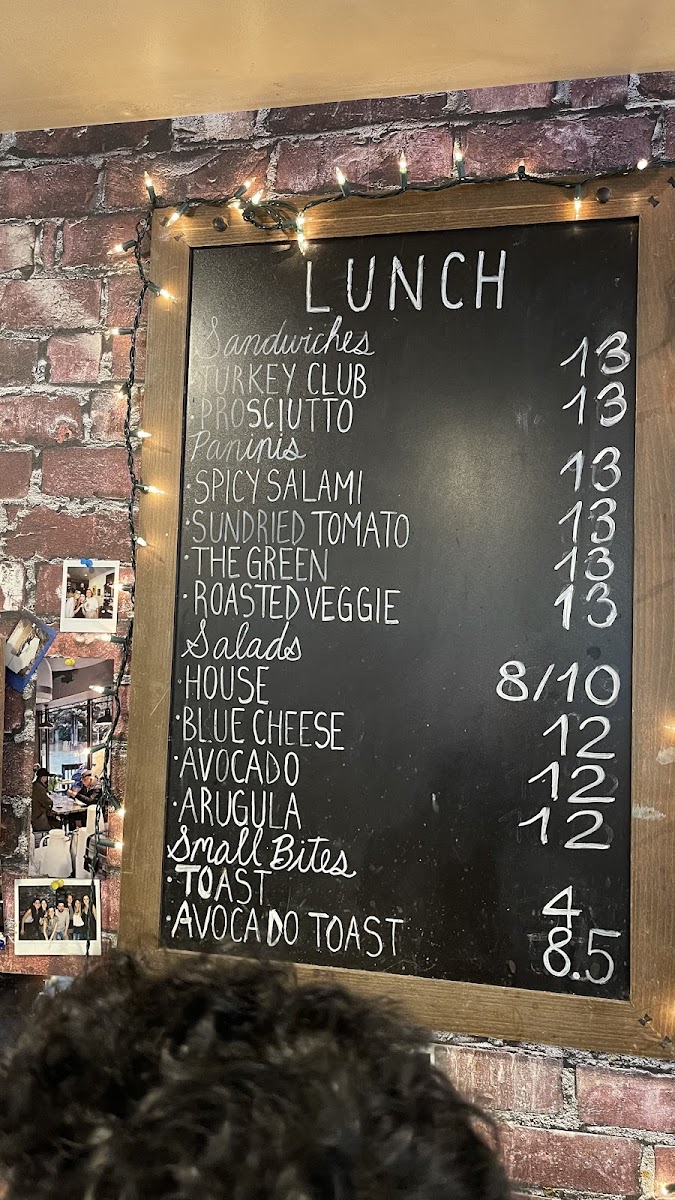 LUNCH
Sandwiches
·TURKEY CLUB 13
·PROSCIUTTO 13
Paninis
·SPICY SALAMI 13
·SUNDRIED TOMATO 13
·THE GREEN 13
·ROASTED VEGGIE 13
Salads
·HOUSE 8/10
·BLUE CHEESE 12
·AVOCADO 12
·ARUGULA 12
Small Bites
·TOAST 4
·AVOCADO TOAST 8.5